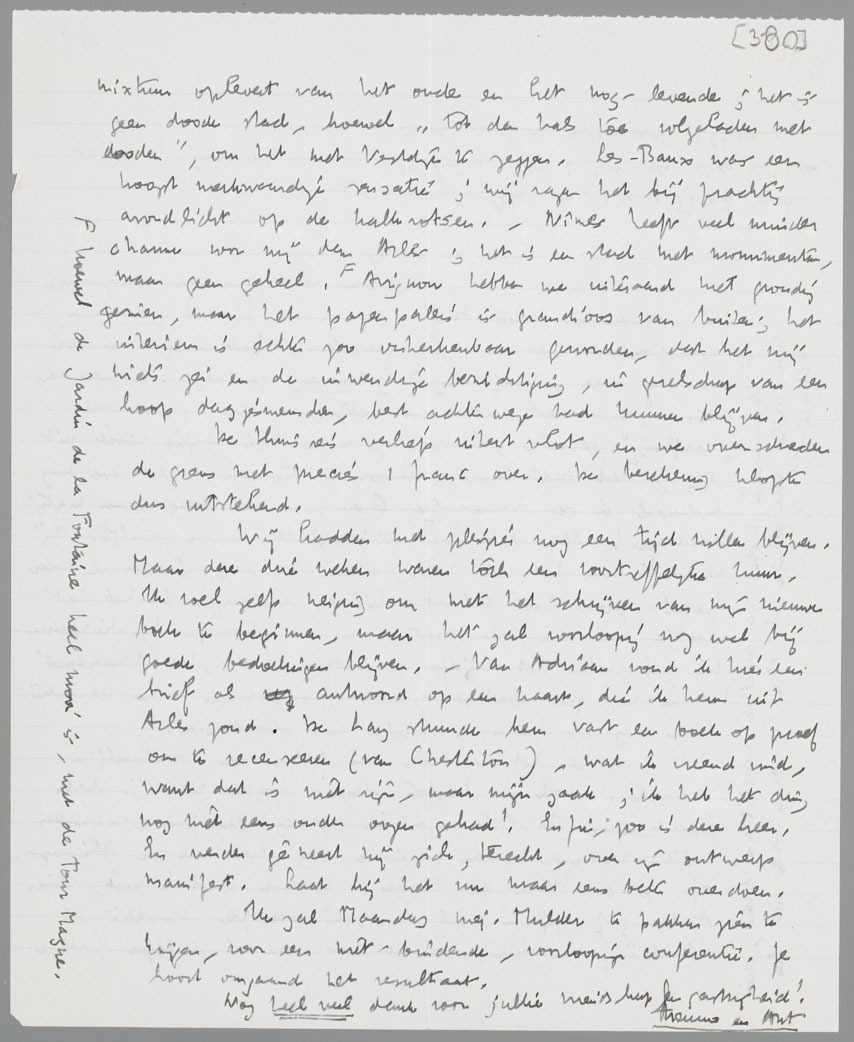 [380]
mixtum oplevert van het oude en het nog-levende; het is
geen doode stad, hoewel „tot den hals toe volgeladen met
dooden", om het met Vestdijk te zeggen. Les-Baux was een
hoogst merkwaardige sensatie; wij zagen het bij prachtig
avondlicht op de kalkrotsen. – Nîmes heeft veel minder
charme voor mij dan Arles; het is een stad met monumenten,
maar geen geheel. F Avignon hebben we uiteraard niet grondig
gezien, maar het pausenpaleis is grandioos van buiten; het
interieur is echter zoo onherkenbaar geworden, dat het mij
niets zei en de inwendige bezichtiging, in gezelschap van een
hoop dagjesmenschen, best achterwege had kunnen blijven.
De thuisreis verliep uiterst vlot, en we overschreden
de grens met precies 1 franc over. De berekening klopte
dus uitstekend.
Wij hadden met plezier nog een tijd willen blijven.
Maar deze drie weken waren toch een voortreffelijke kuur.
Ik voel zelfs neiging om met het schrijven van mijn nieuwe
boek te beginnen, maar het zal voorloopig nog wel bij
goede bedoelingen blijven. – Van Adriaan vond ik hier een
brief als antwoord op een kaart, die ik hem uit
Arles zond. De Lang stuurde hem vast een boek op proef
om te recenseeren (van Chesterton), wat ik vreemd vind,
want dat is niet zijn, maar mijn zaak; ik heb het ding
nog niet eens onder oogen gehad! Enfin, zoo is deze heer.
En verder geneert hij zich, terecht, over zijn ontwerp
manifest. Laat hij het nu maar eens beter overdoen.
Ik zal Maandag mej. Mulder te pakken zien te
krijgen, voor een niet-bindende, voorloopige conferentie. Je
hoort omgaand het resultaat.
Nog heel veel dank voor jullie vriendschap en gastvrijheid!
Menno en Ant
F hoewel de Jardin de la Fontaine heel mooi is, met de Tour Magne.